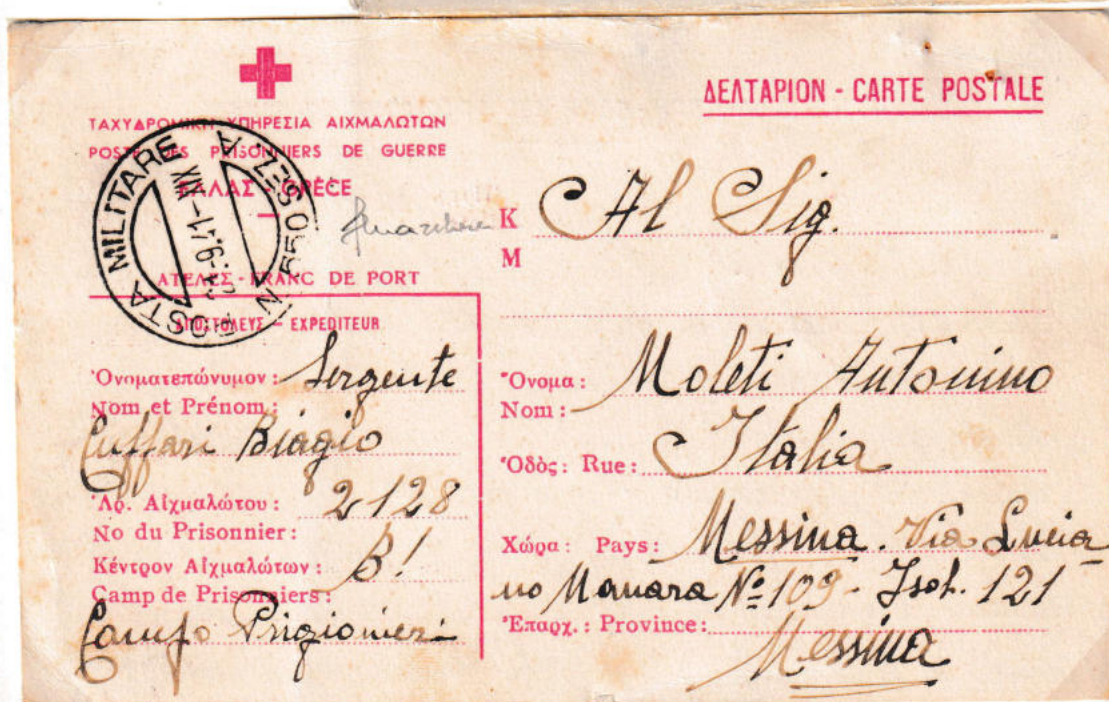 ΔΕΛΤΑΡΙΟΝ - CARTE POSTALE
ΤΑΧΥΔΡΟΜΙΚΗ ΥΠΗΡΕΣΙΑ ΑΙΧΜΑΛΩΤΩΝ
POSTE DES PRISONNIERS DE GUERRE
ΕΛΛΑΣ - GRÈCE
ΑΤΕΛΕΣ - FRANC DE PORT
POSTA MILITARE
N. 550 SEZ. A
9.41-XIX
ΑΠΟΣΤΟΛΕΥΣ - EXPEDITEUR
Ὀνοματεπώνυμον: Sergente
Nom et Prénom:
Cuffari Biagio
Ἀρ. Αἰχμαλώτου: 2128
No du Prisonnier:
Κέντρον Αἰχμαλώτων: B!
Camp de Prisonniers:
Campo Prigionieri
K Al Sig.
M
Ὄνομα: Moleti Antonino
Nom:
Ὁδὸς: Rue: Italia
Χώρα: Pays: Messina. Via Lucia
no Manara Nº 109 - Isol. 121
Ἐπαρχ.: Province:
Messina